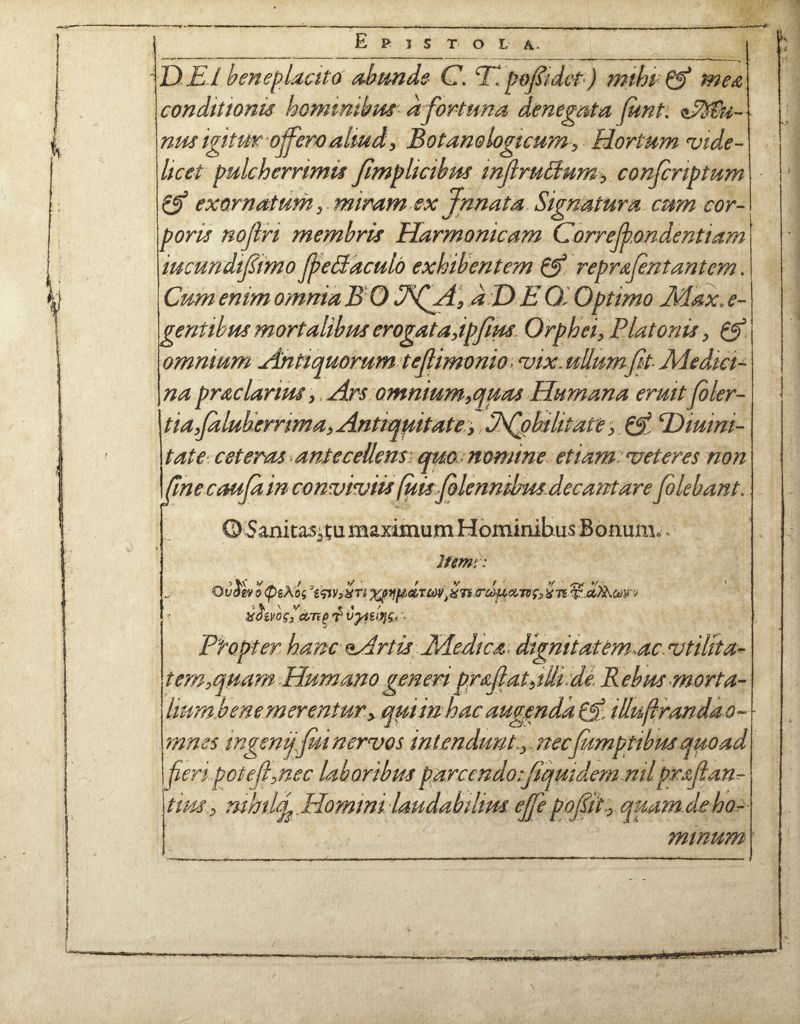 EPISTOLA.
DEI beneplacito abunde C. T. poßidet) mihi & meæ
conditionis hominibus à fortuna denegata sunt. Mu-
nus igitur offero aliud, Botanologicum, Hortum vide-
licet pulcherrimis simplicibus instructum, conscriptum
& exornatum, miram ex Innata Signatura cum cor-
poris nostri membris Harmonicam Correspondentiam
iucundißimo spectaculo exhibentem & repræsentantem.
Cum enim omnia BONA, à DEO Optimo Max. e-
gentibus mortalibus erogata, ipsius Orphei, Platonis, &
omnium Antiquorum testimonio vix ullum sit Medici-
na præclarius, Ars omnium, quas Humana eruit soler-
tia, saluberrima, Antiquitate, Nobilitate, & Diuini-
tate ceteras antecellens: quo nomine etiam veteres non
sine causa in conviviis suis solennibus decantare solebant.
O Sanitas, tu maximum Hominibus Bonum.
Item:
Οὐδὲν ὄφελός ἐστιν, ȣ̓́τι χρημάτων, ȣ̓́τι σώματος, ȣ̓́τε ἄλλων
ȣ̓δενὸς, ἄπερ ὑγιείης.
Propter hanc Artis Medicæ dignitatem ac vtilita-
tem, quam Humano generi præstat, illi de Rebus morta-
lium bene merentur, qui in hac augenda & illustranda o-
mnes ingenij sui nervos intendunt, nec sumptibus quoad
fieri potest, nec laboribus parcendo: siquidem nil præstan-
tius, nihilq; Homini laudabilius esse poßit, quam de ho-
minum